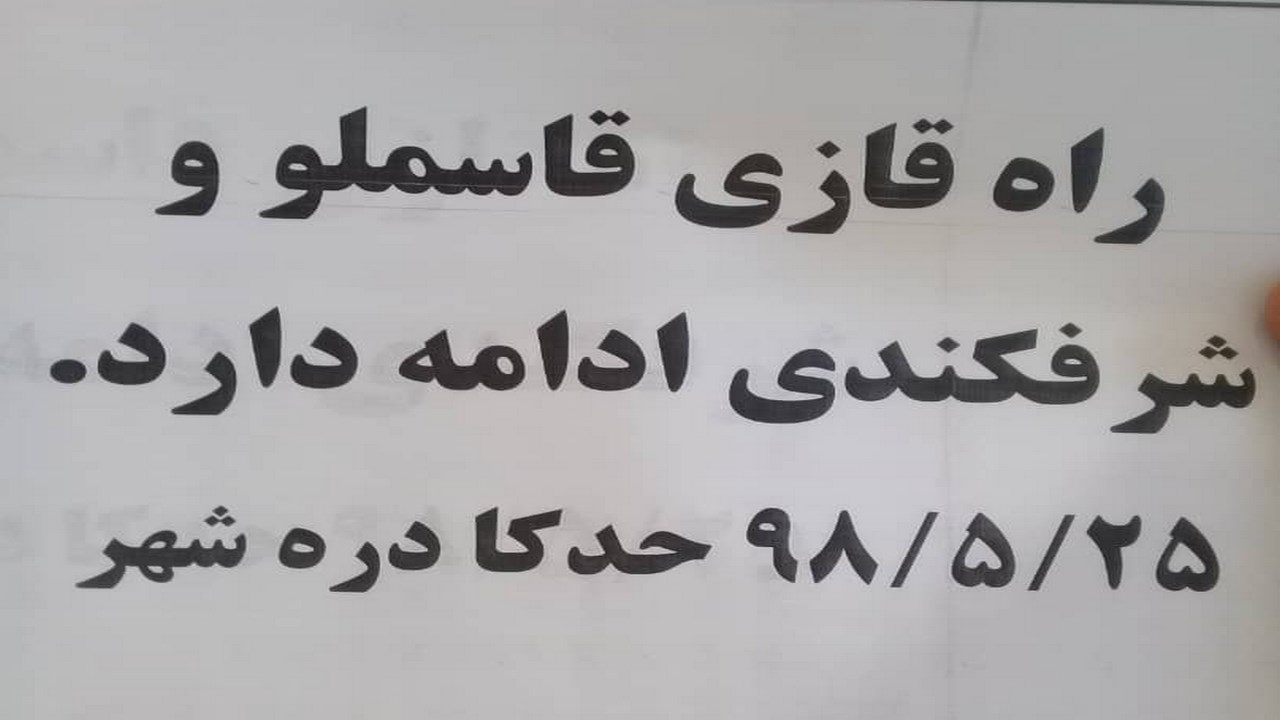 راه قازی قاسملو و
شرفکندی ادامه دارد.
۹۸/۵/۲۵ حدکا دره شهر